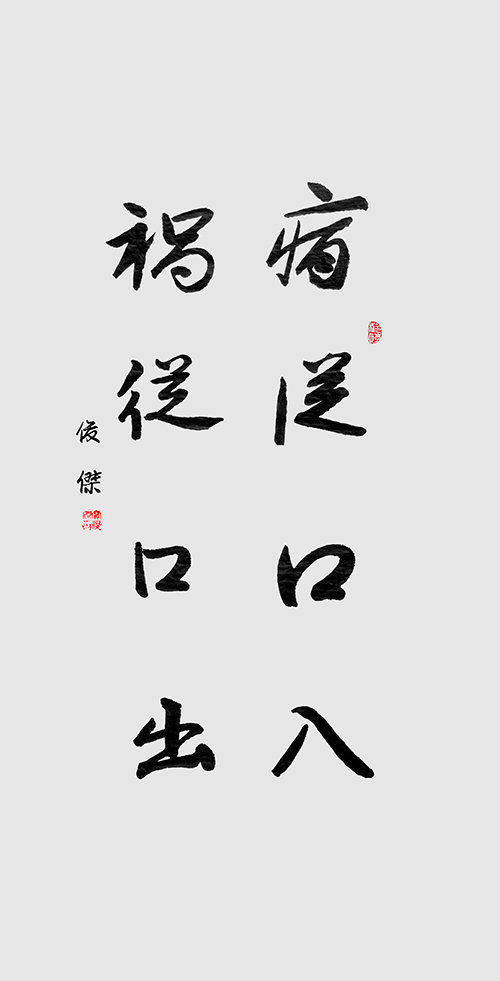 病從口入
祸從口出
俊傑